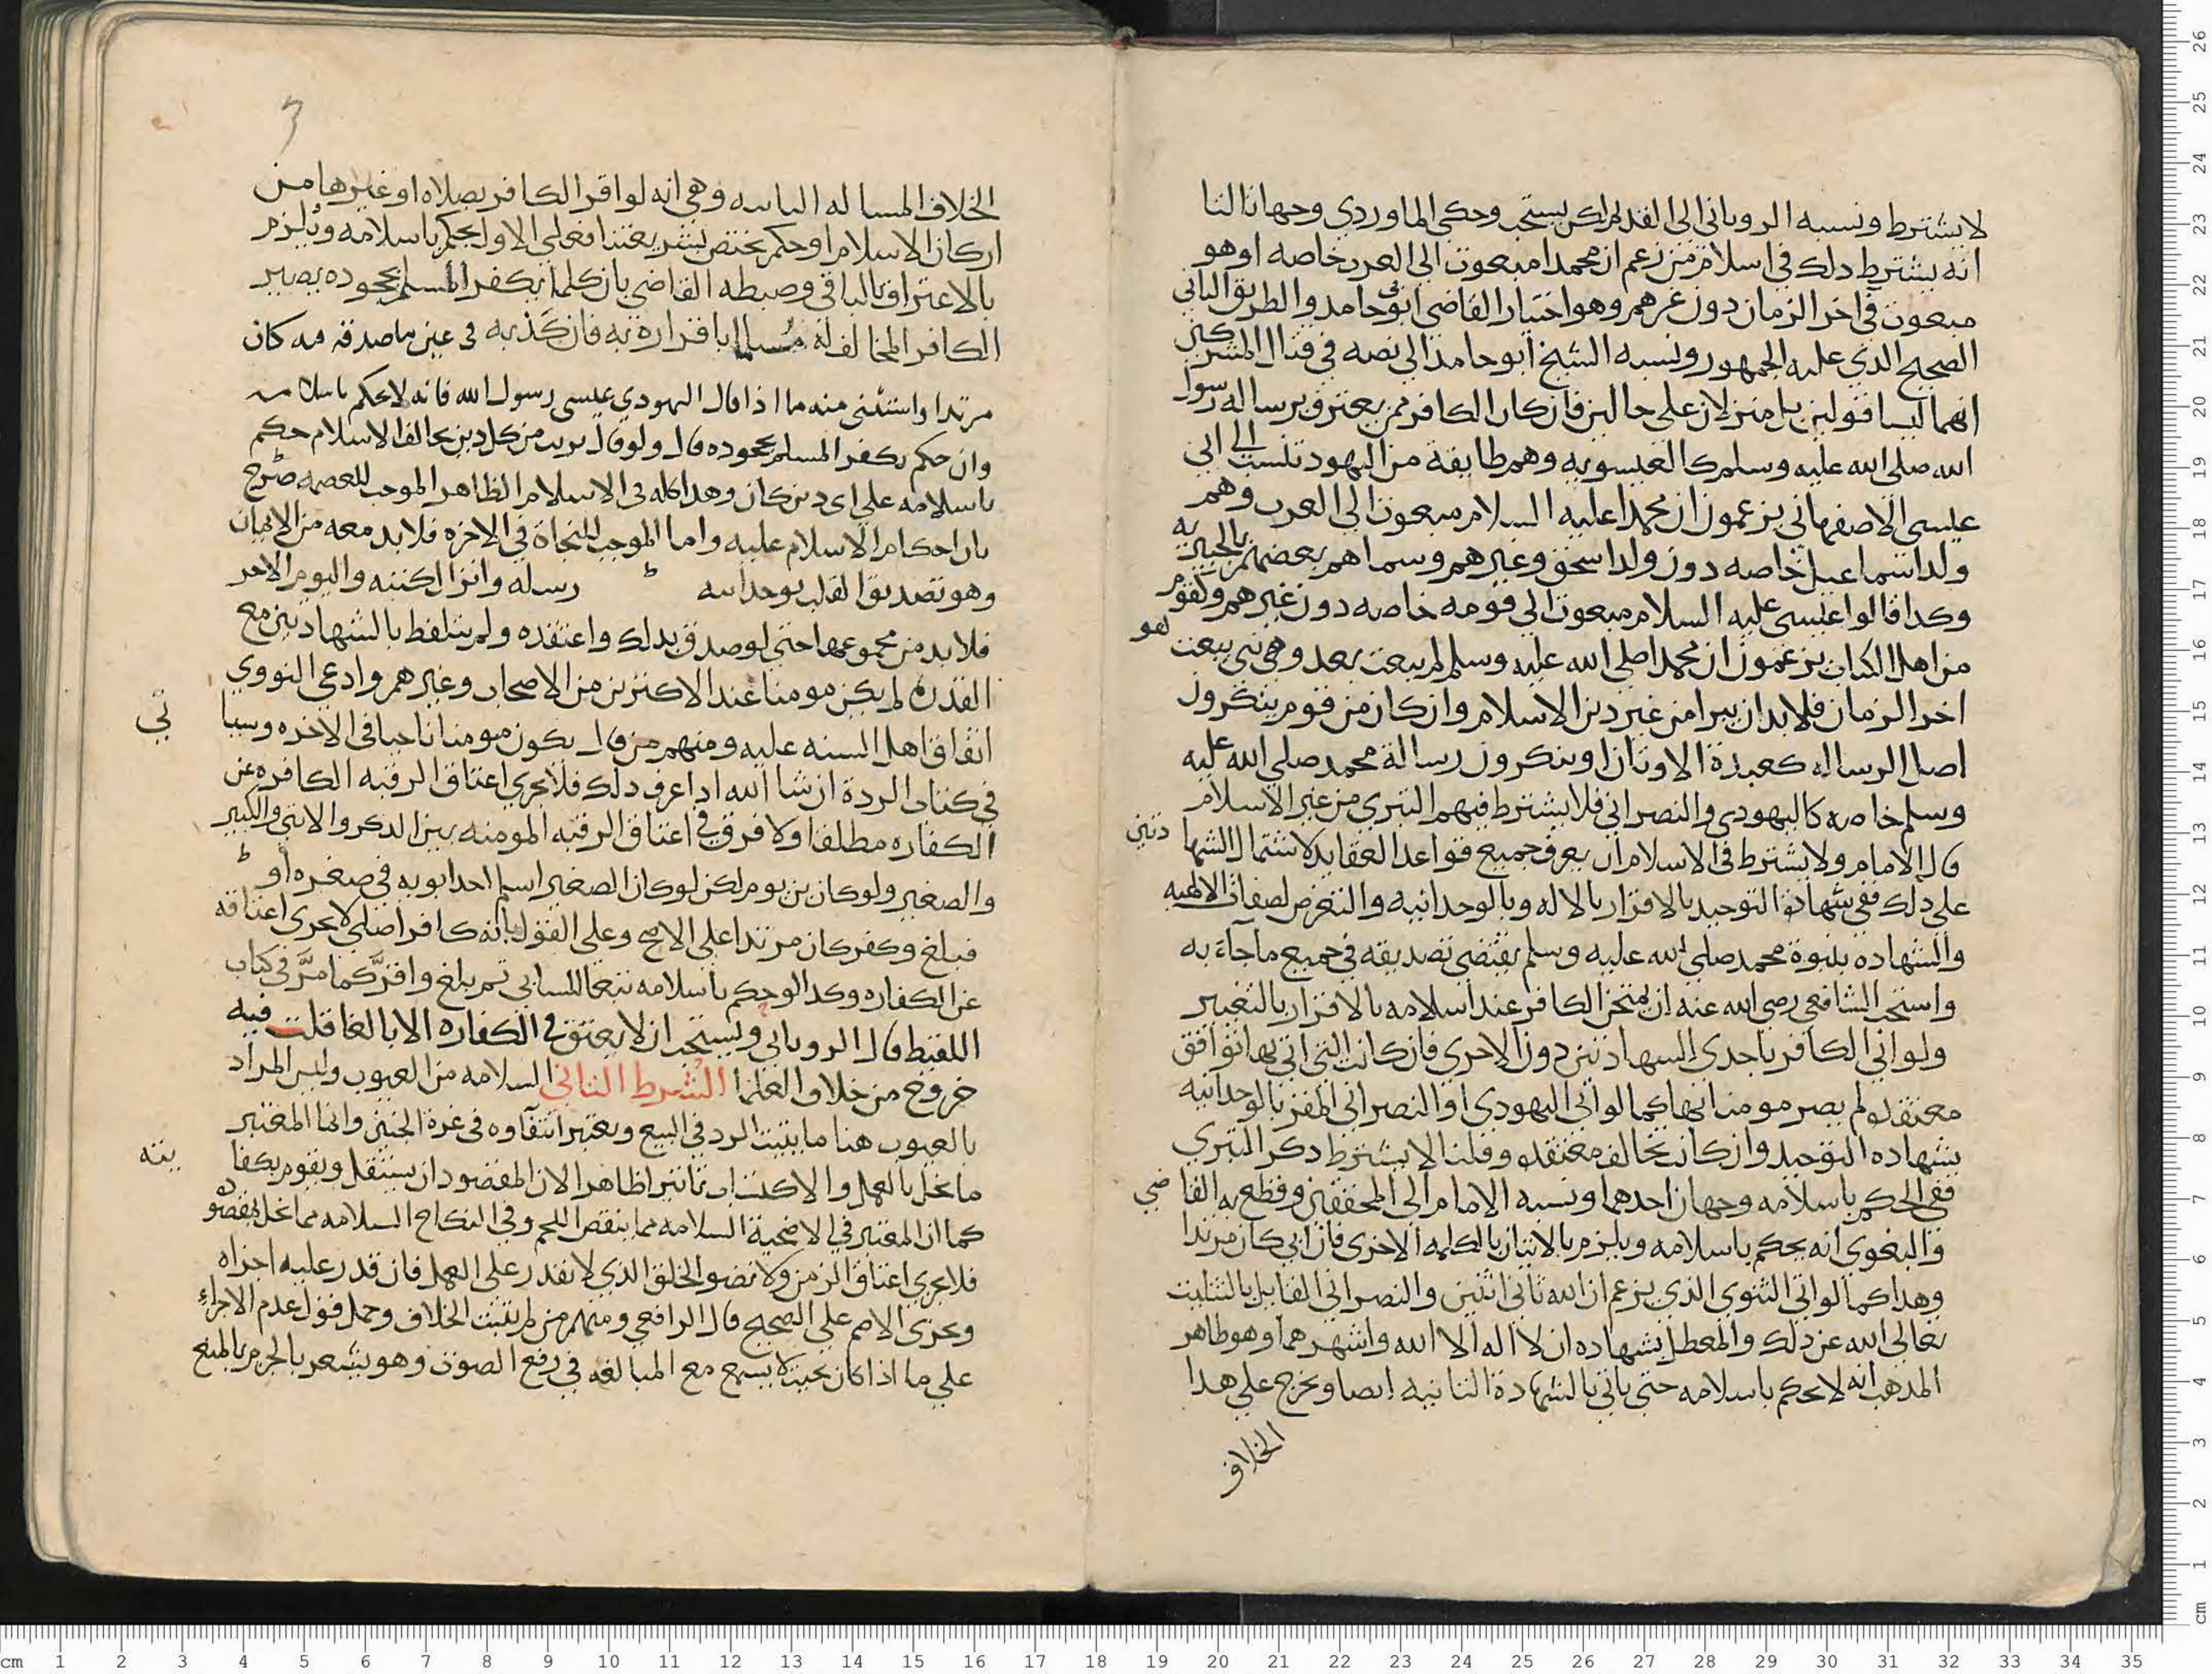 لا يشترط ونسبه الروياني الى القديم لكن يستحب وحكى الماوردي وجها ثالثا
انه يشترط ذلك في اسلام من زعم ان محمدا مبعوث الى العرب خاصه او هو
مبعوث في اخر الزمان دون غيرهم وهو اختيار القاضي ابي حامد والطريق الثاني
الصحيح الذي عليه الجمهور ونسبه الشيخ ابو حامد الى نصه في قتال المشركين
انهما ليسا قولين بل منزلان على حالين فان كان الكافر ممن يعترف برساله رسول
الله صلى الله عليه وسلم كالعيسويه وهم طايفة من اليهود تنسب الى ابي
عيسى الاصفهاني يزعمون ان محمدا عليه السلام مبعوث الى العرب وهم
ولد اسماعيل خاصه دون ولد اسحق وغيرهم وسماهم بعضهم
وكذا قالوا عيسى عليه السلام مبعوث الى قومه خاصه دون غيرهم وكقوم
من اهل الكتاب يزعمون ان محمدا صلى الله عليه وسلم لم يبعث بعد وهو نبي يبعث
اخر الزمان فلا بد ان يبرا من غير دين الاسلام وان كان من قوم ينكرون
اصل الرساله كعبدة الاوثان او ينكرون رسالة محمد صلى الله عليه
وسلم خاصه كاليهودي والنصراني فلا يشترط فيهم التبري من غير الاسلام
قال الامام ولا يشترط في الاسلام ان يعرف جميع قواعد العقايد لاشتمال الشهادتين
على ذلك ففي شهادة التوحيد بالاقرار بالاله وبالوحدانيه والتعرض لصفات الالهيه
والشهاده بنبوة محمد صلى الله عليه وسلم يقتضي تصديقه في جميع ما جاء به
واستحب الشافعي رضي الله عنه ان يمتحن الكافر عند اسلامه بالاقرار بالتغيير
ولو اتى الكافر باحدى الشهادتين دون الاخرى فان كانت التي اتى بها توافق
معتقده لم يصر مومنا بها كما لو اتى اليهودي او النصراني المقر بالوحدانيه
بشهاده التوحيد وان كانت تخالف معتقده وقلنا لا يشترط ذكر التبري
ففي الحكم باسلامه وجهان احدهما ونسبه الامام الى المحققين وقطع به القاضي
والبغوي انه يحكم باسلامه ويلزم بالاتيان بالكلمه الاخرى فان ابى كان مرتدا
وهذا كما لو اتى الثنوي الذي يزعم ان الله ثاني اثنين والنصراني القايل بالتثليث
تعالى الله عن ذلك والمعطل بشهاده ان لا اله الا الله واشهرهما وهو ظاهر
المذهب انه لا يحكم باسلامه حتى ياتي بالشهادة الثانيه ايضا ويخرج على هذا
الخلاف
الخلاف المساله الثانيه وهي انه لو اقر الكافر بصلاه او غيرها من
اركان الاسلام او حكم يختص بشريعتنا فعلى الاول يحكم باسلامه ويلزم
بالاعتراف بالباقي وضبطه القاضي بان كلما يكفر المسلم بجحوده يصير
الكافر المخالف له مسلما باقراره به فان كذبه في عين ما صدقه فيه كان
مرتدا واستثنى منه ما اذا قال اليهودي عيسى رسول الله فانه لا يحكم باسلامه
وان حكم بكفر المسلم بجحوده قال ولو قال بريت من كل دين يخالف الاسلام حكم
باسلامه على اي دين كان وهذا كله في الاسلام الظاهر الموجب للعصمه صرح
بان احكام الاسلام عليه واما الموجب للنجاة في الاخره فلا بد معه من الايمان
وهو تصديق القلب بوحدانيه رسله وانزال كتبه واليوم الاخر
فلا بد من مجموعها حتى لو صدق بذلك واعتقده ولم يتلفظ بالشهادتين مع
القدره لم يكن مومنا عند الاكثرين من الاصحاب وغيرهم وادعى النووي
اتفاق اهل السنه عليه ومنهم من قال يكون مومنا ناجيا في الاخره وسياتي
في كتاب الردة ان شا الله اذا عرف ذلك فلا يجزي اعتاق الرقبه الكافره عن
الكفاره مطلقا ولا فرق في اعتاق الرقبه المومنه بين الذكر والانثى والكبير
والصغير ولو كان بن يوم لكن لو كان الصغير اسلم احد ابويه في صغره او
فبلغ وكفر كان مرتدا على الاصح وعلى القول بانه كافر اصلي لا يجزي اعتاقه
عن الكفاره وكذا لو حكم باسلامه تبعا للسابي ثم بلغ واقر كما مر في كتاب
اللقيط قال الروياني ويستحب ان لا يعتق في الكفاره الا بالغا قلت فيه
خروج من خلاف العلما الشرط الثاني السلامه من العيوب وليس المراد
بالعيوب هنا ما يثبت الرد في البيع ويعتبر انتفاوه في غرة الجنين وانما المعتبر
ما يخل بالعمل والاكتساب تاثيرا ظاهرا لان المقصود ان يستقل ويقوم بكفايته
كما ان المعتبر في الاضحية السلامه مما ينقص اللحم وفي النكاح السلامه مما يخل بمقصوده
فلا يجزي اعتاق الزمن ولا نضو الخلق الذي لا يقدر على العمل فان قدر عليه اجزاه
ويجزي الاصم على الصحيح قال الرافعي ومنهم من لم يثبت الخلاف وحمل قول عدم الاجزاء
على ما اذا كان بحيث لا يسمع مع المبالغه في رفع الصوت وهو يشعر بالجزم بالمنع